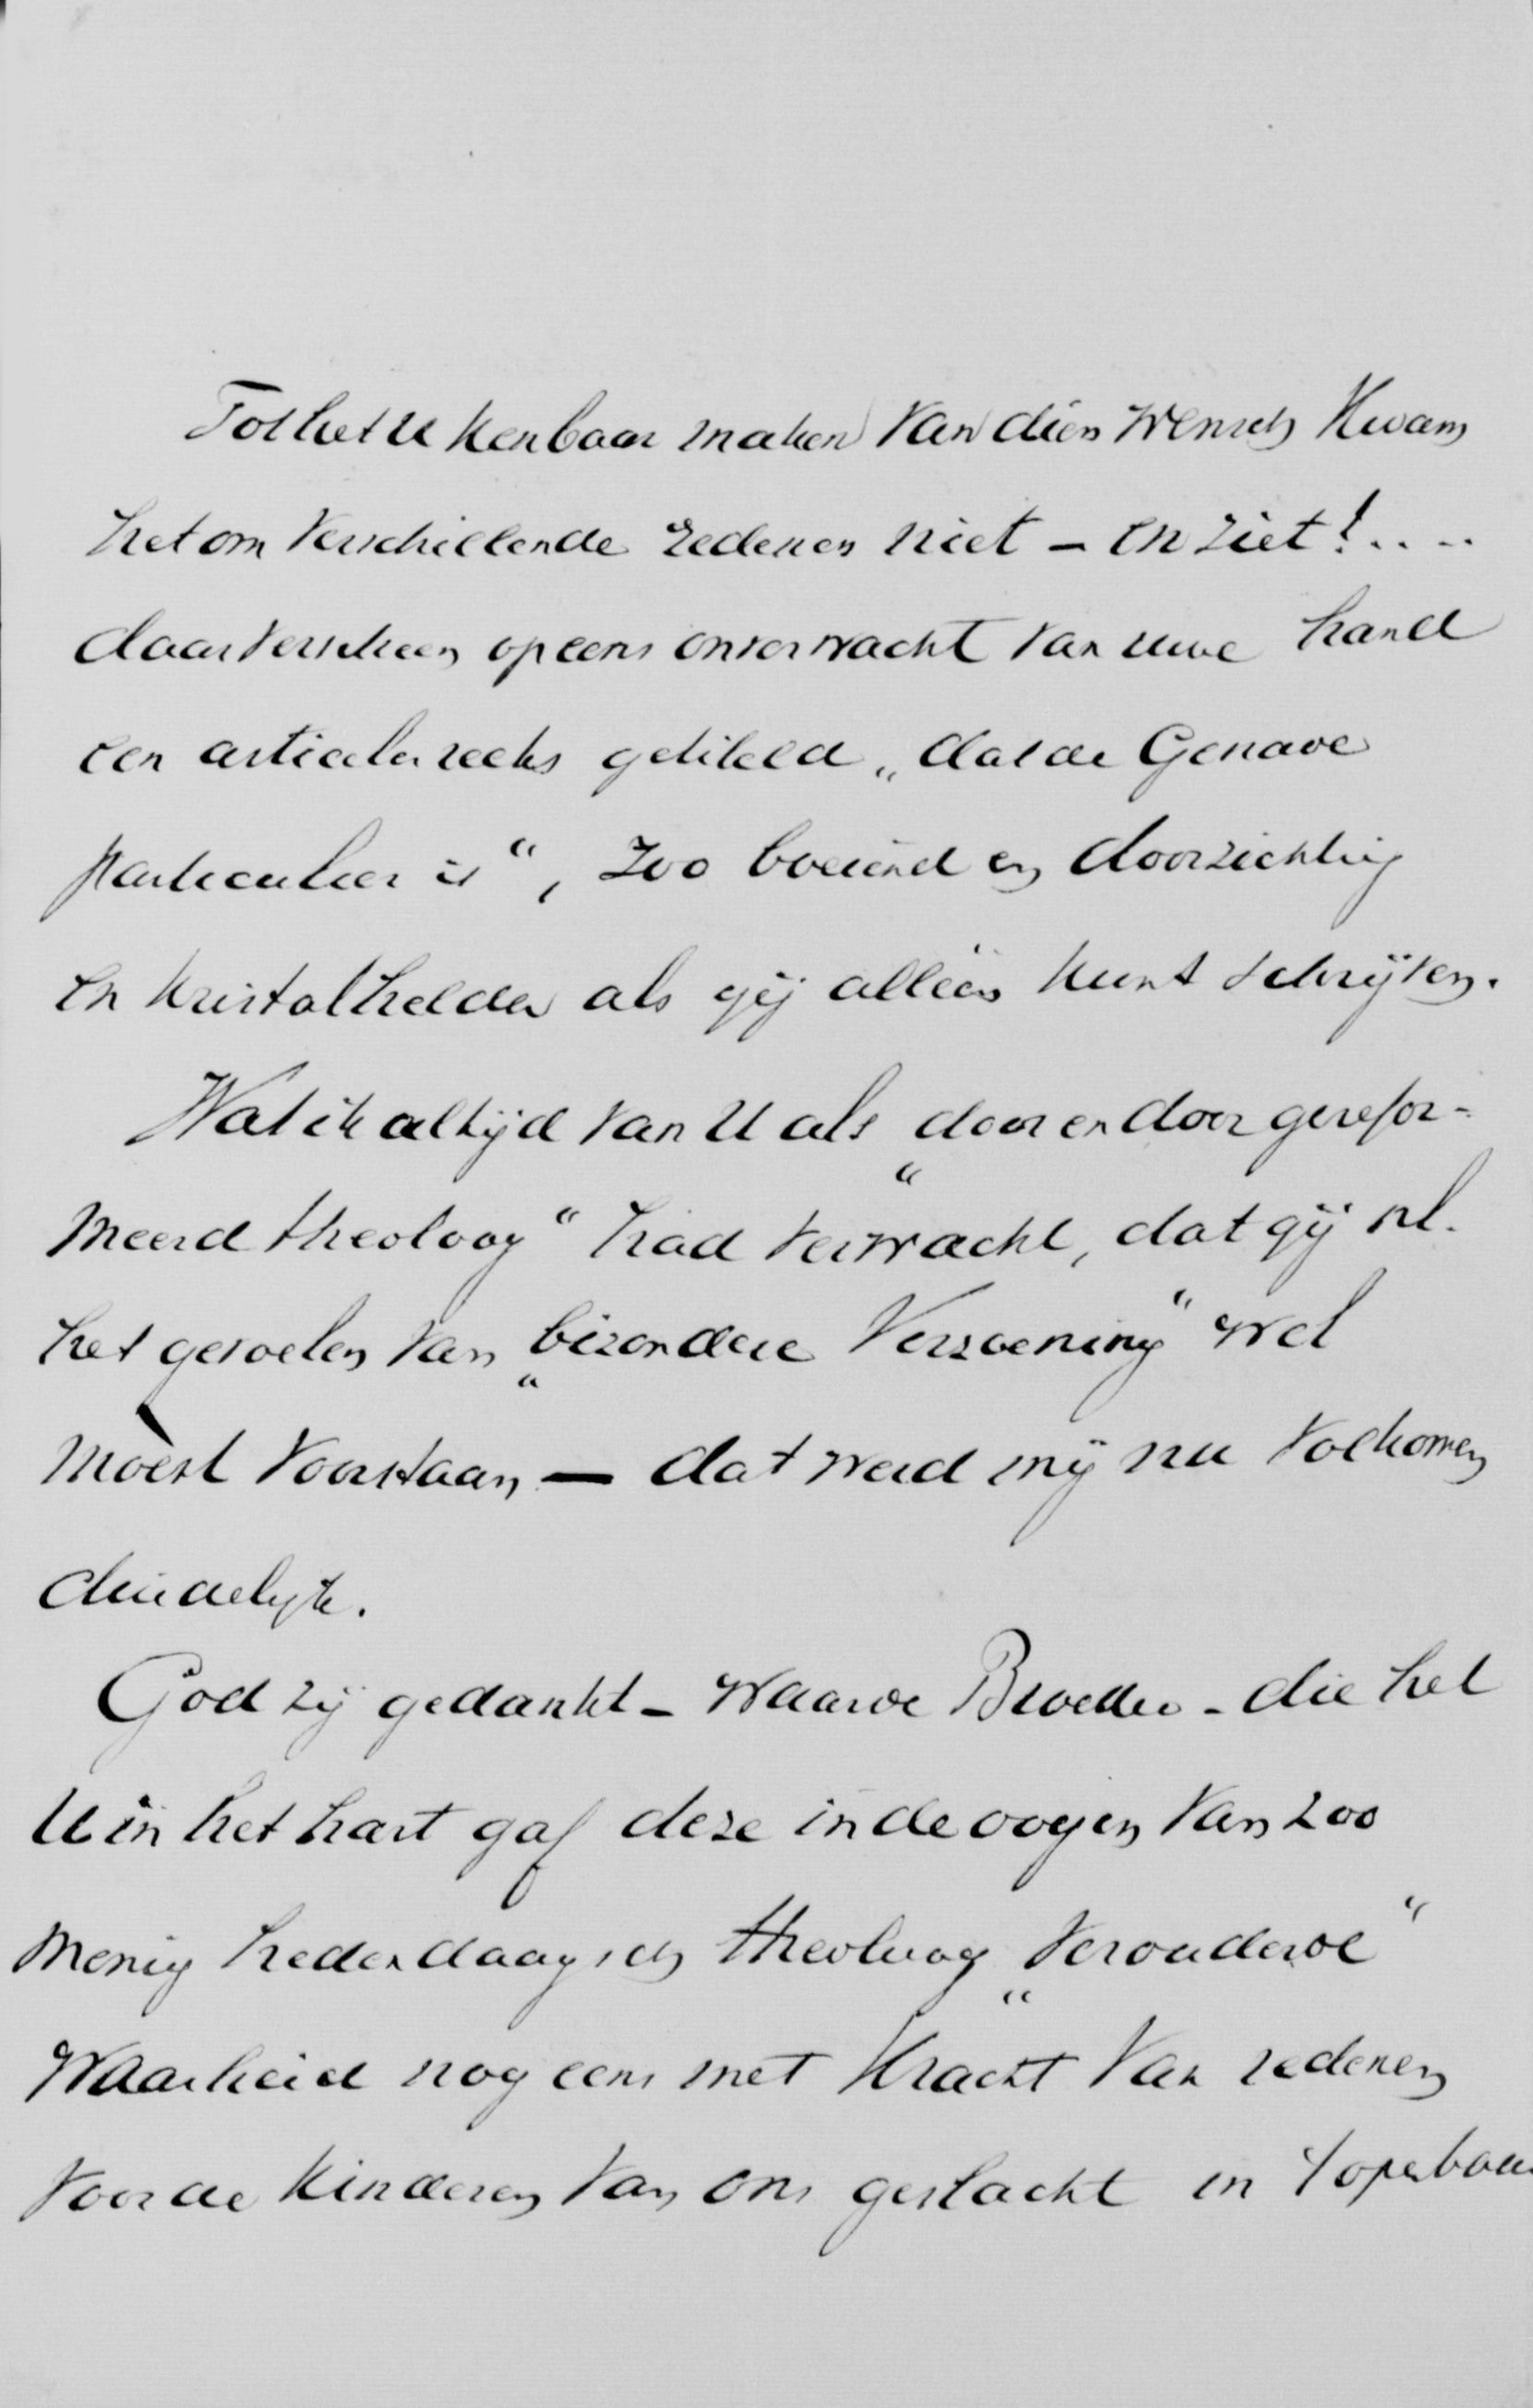 Tot het U kenbaar maken van dien wensch kwam
het om verschillende redenen niet – en ziet!....
daar verscheen opeens onverwacht van uwe hand
een articelenreeks getiteld „dat de Genade
particulier is“, zoo boeiend en doorzichtig
en kristalhelder als gij alléén kunt schrijven.
Wat ik altijd van U als „door en door gerefor-
meerd theoloog“ had verwacht, dat gij nl.
het gevoelen van „bizondere Verzoening“ wel
moest voorstaan – dat werd mij nu volkomen
duidelijk.
God zij gedankt – Waarde Broeder – die het
U in het hart gaf deze in de oogen van zoo
menig hedendaagsch theoloog „verouderde“
Waarheid nog eens met kracht van redenen
voor de kinderen van ons geslacht in 't openbaar